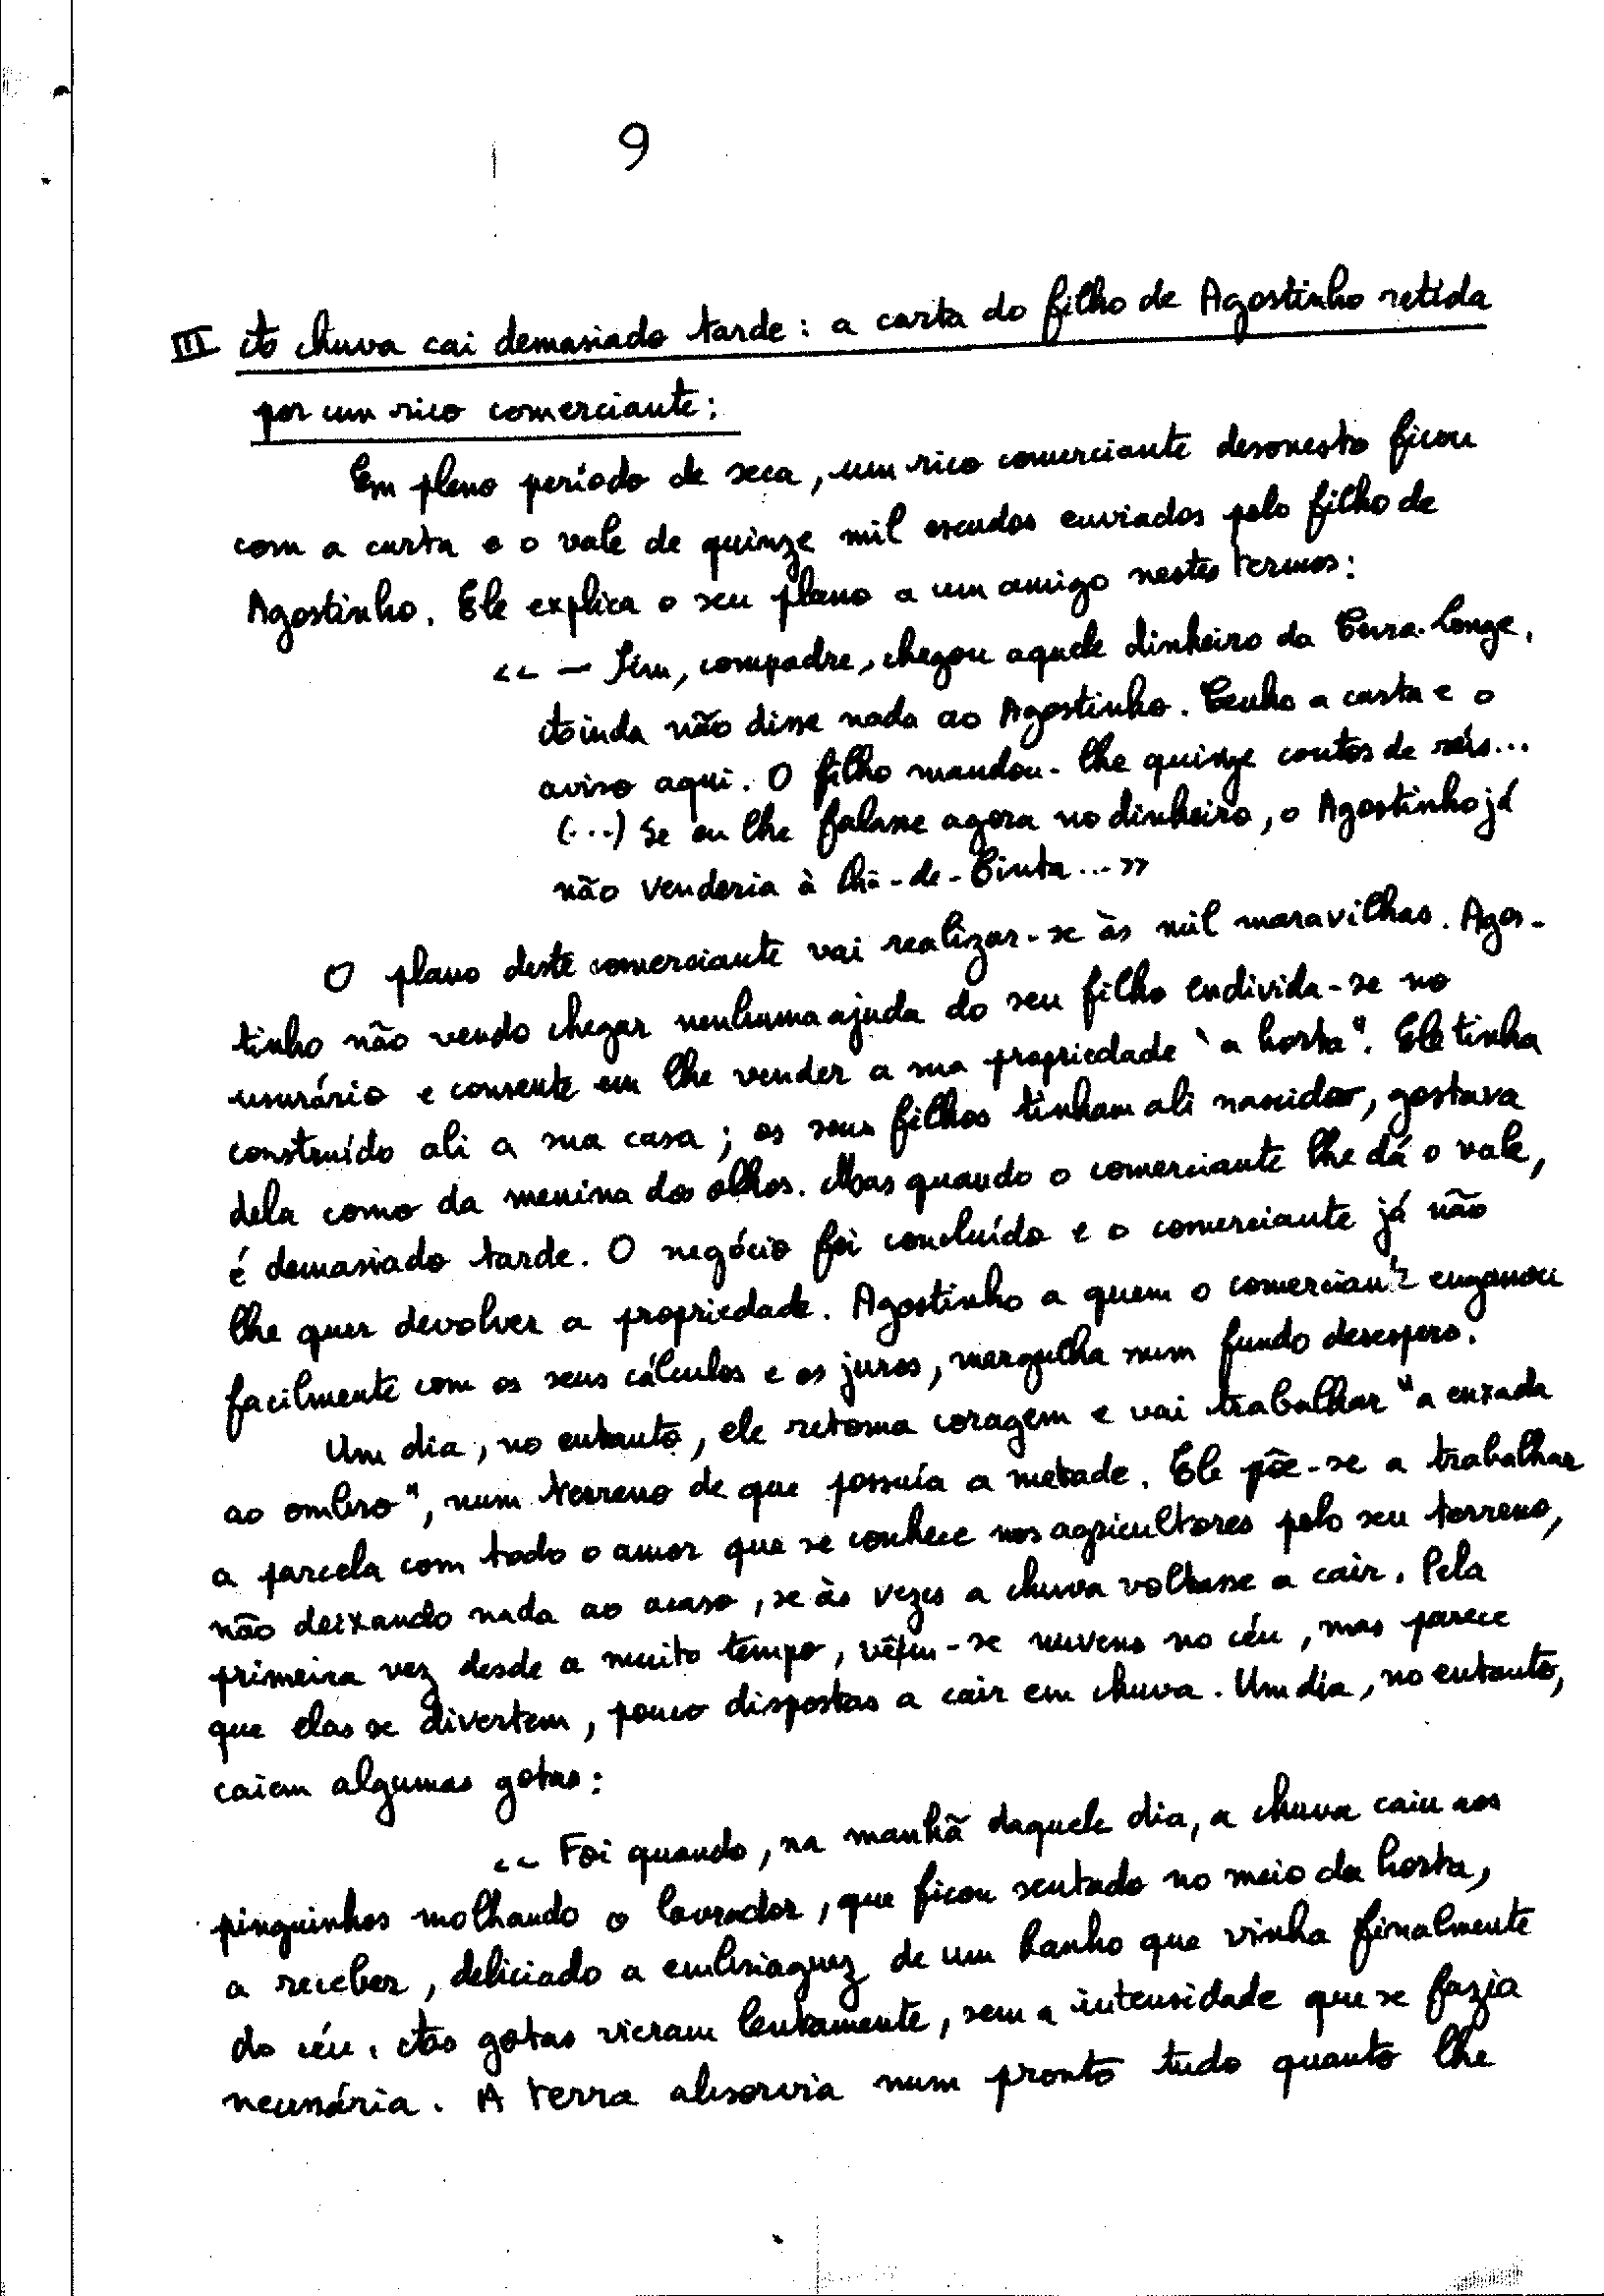 9
III A chuva cai demasiado tarde: a carta do filho de Agostinho retida
por um rico comerciante:
Em pleno período de seca, um rico comerciante desonesto ficou
com a carta e o vale de quinze mil escudos enviados pelo filho de
Agostinho. Ele explica o seu plano a um amigo nestes termos:
<< — Sim, compadre, chegou aquele dinheiro da Terra-Longe.
Ainda não disse nada ao Agostinho. Tenho a carta e o
aviso aqui. O filho mandou-lhe quinze contos de réis...
(...) Se eu lhe falasse agora no dinheiro, o Agostinho já
não venderia à Chã-de-Tinta... >>
O plano deste comerciante vai realizar-se às mil maravilhas. Agos-
tinho não vendo chegar nenhuma ajuda do seu filho endivida-se no
usurário e consente em lhe vender a sua propriedade "a horta". Ele tinha
construído ali a sua casa; os seus filhos tinham ali nascido, gostava
dela como da menina dos olhos. Mas quando o comerciante lhe dá o vale,
é demasiado tarde. O negócio foi concluído e o comerciante já não
lhe quer devolver a propriedade. Agostinho a quem o comerciante enganou
facilmente com os seus cálculos e os juros, mergulha num fundo desespero.
Um dia, no entanto, ele retoma coragem e vai trabalhar "a enxada
ao ombro", num terreno de que possuía a metade. Ele põe-se a trabalhar
a parcela com todo o amor que se conhece nos agricultores pelo seu terreno,
não deixando nada ao acaso, se às vezes a chuva voltasse a cair. Pela
primeira vez desde a muito tempo, vêem-se nuvens no céu, mas parece
que elas se divertem, pouco dispostas a cair em chuva. Um dia, no entanto,
caiem algumas gotas:
<< Foi quando, na manhã daquele dia, a chuva caiu aos
pinguinhos molhando o lavrador, que ficou sentado no meio da horta,
a receber, deliciado a embriaguez de um banho que vinha finalmente
do céu. As gotas vieram lentamente, sem a intensidade que se fazia
necessária. A terra absorvia num pronto tudo quanto lhe